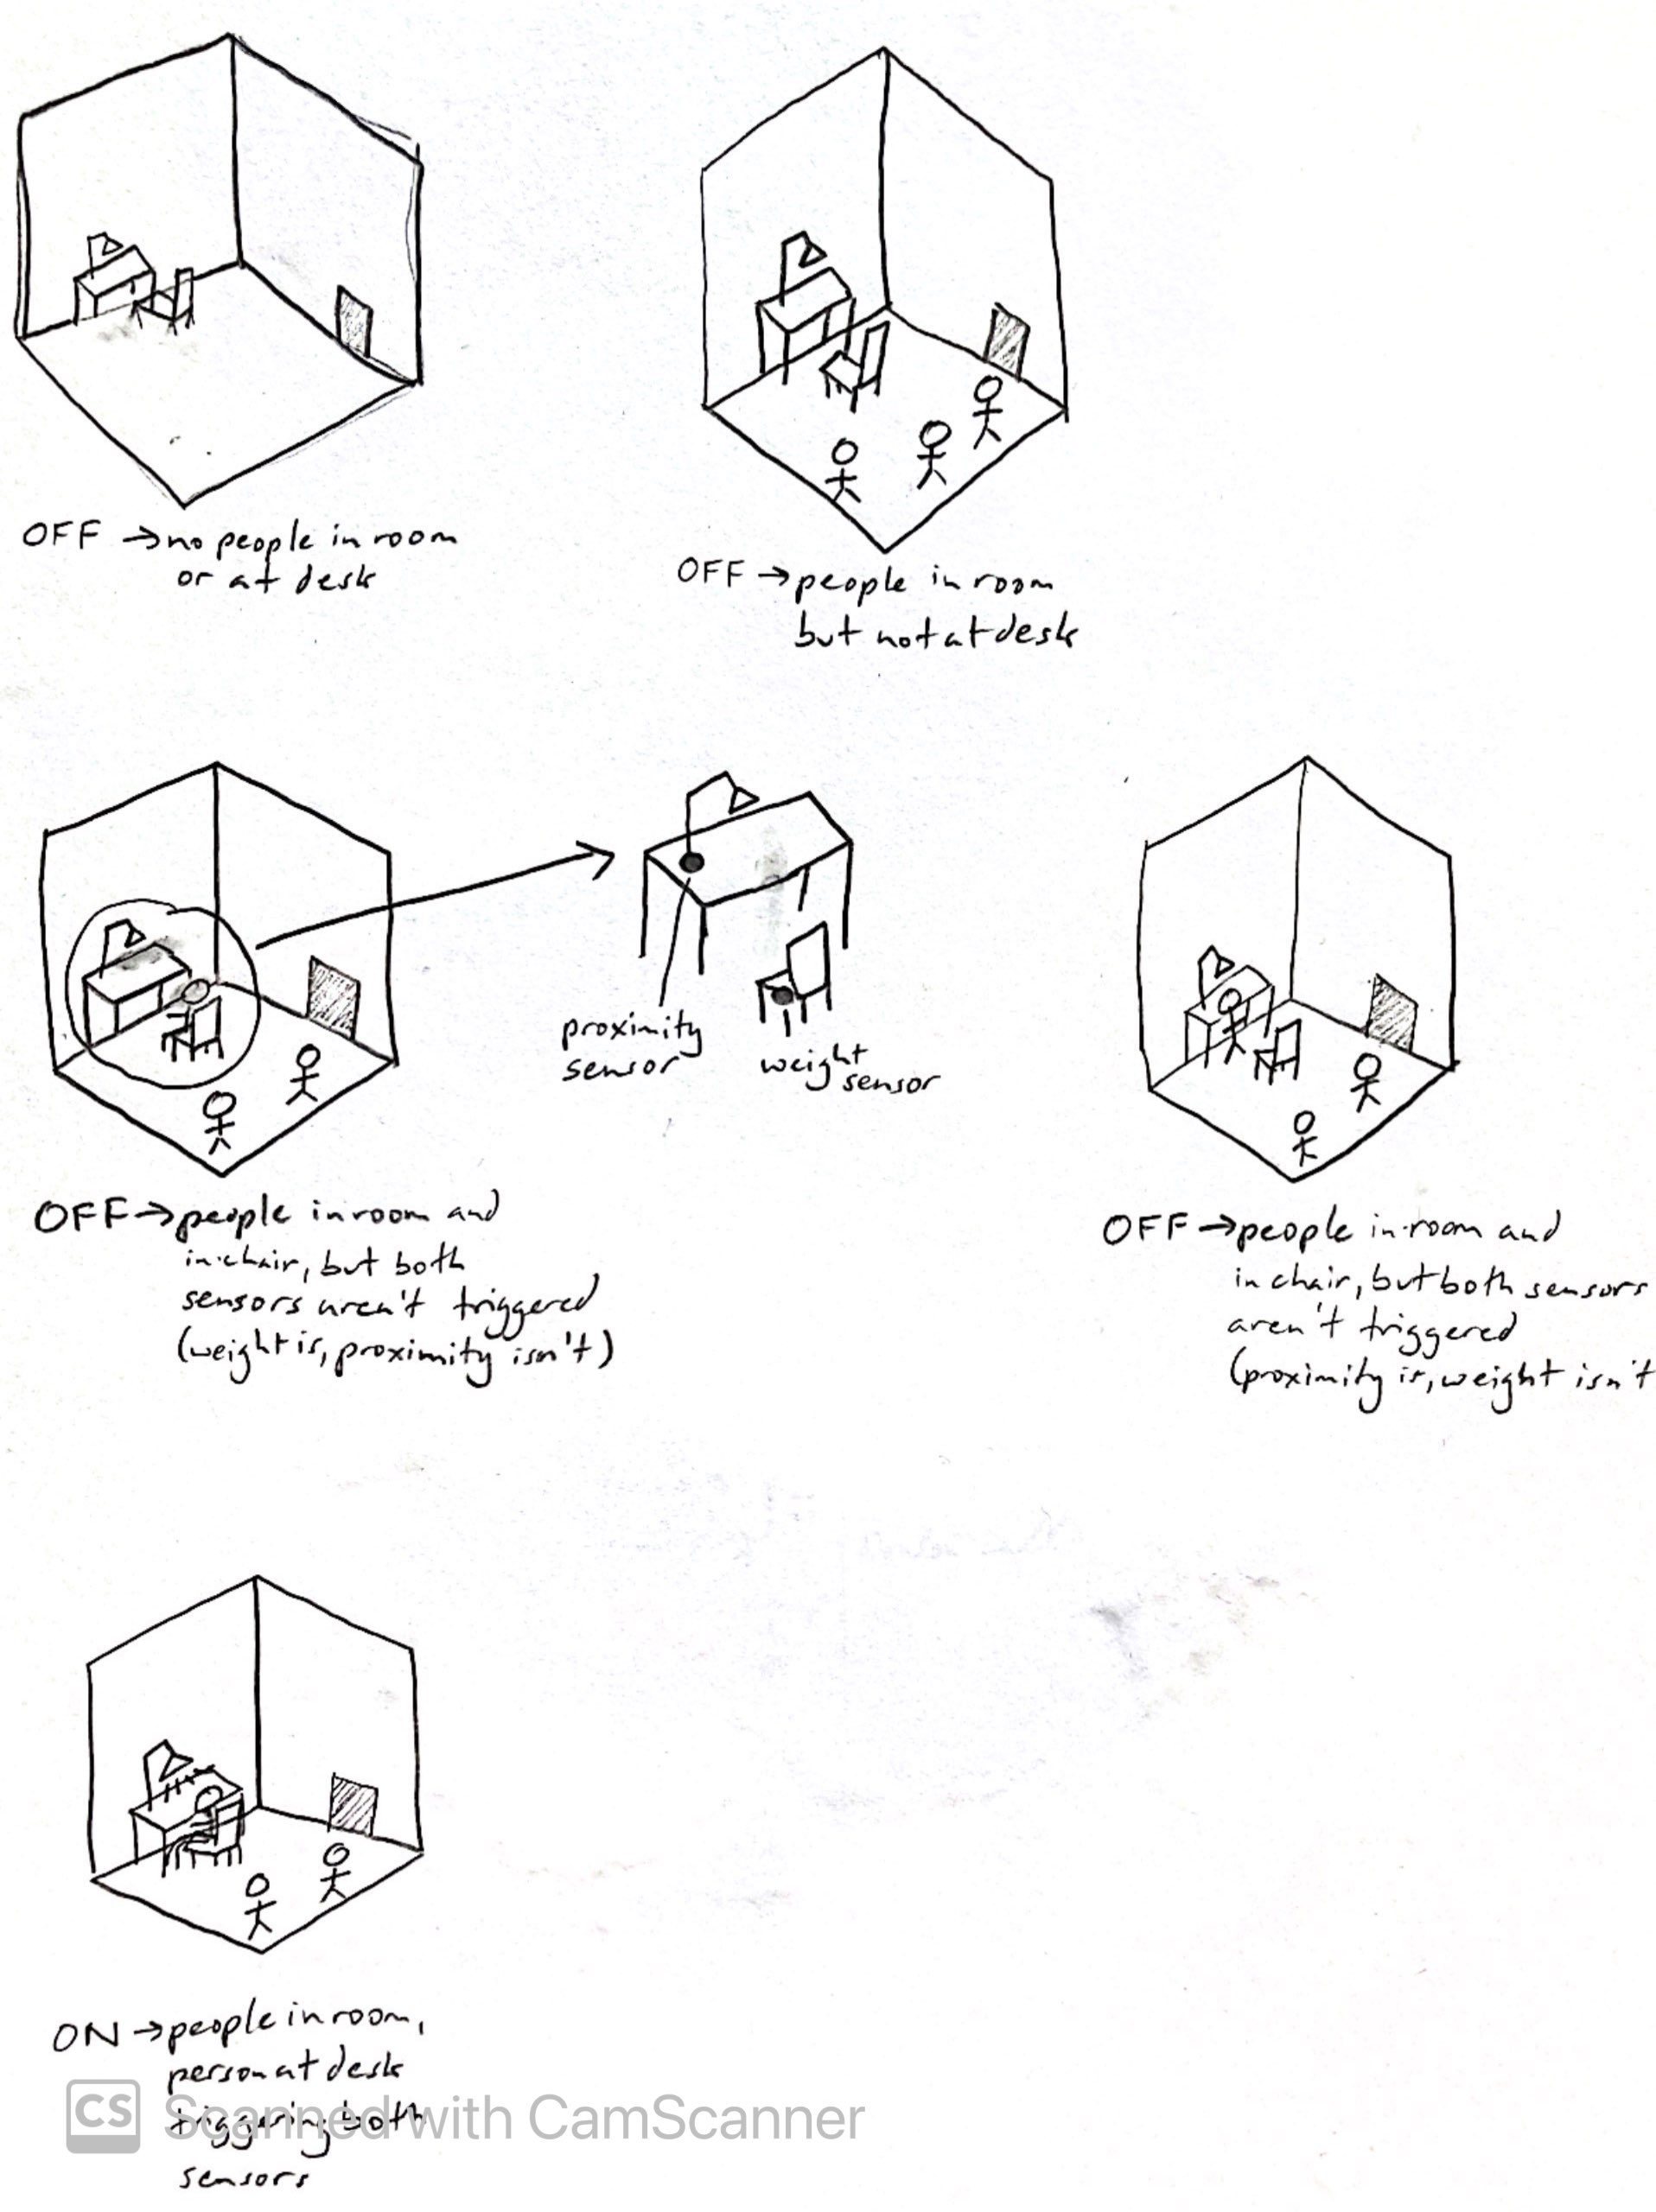 OFF → no people in room
or at desk
OFF → people in room
but not at desk
proximity
sensor
weight
sensor
OFF → people in room and
in chair, but both
sensors aren't triggered
(weight is, proximity isn't)
OFF → people in room and
in chair, but both sensors
aren't triggered
(proximity is, weight isn't
ON → people in room,
person at desk
triggering both
sensors
CS Scanned with CamScanner